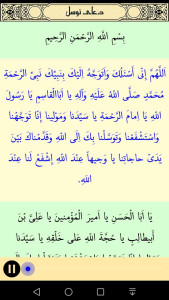 دعای توسل
بِسْمِ اللَّهِ الرَّحْمنِ الرَّحيمِ
اَللّهُمَّ اِنّى اَسْئَلُكَ وَاَتَوَجَّهُ اِلَيْكَ بِنَبِيِّكَ نَبِىِّ الرَّحْمَةِ
مُحَمَّدٍ صَلَّى اللهُ عَلَيْهِ وَآلِهِ يا اَبَاالْقاسِمِ يا رَسُولَ
اللهِ يا اِمامَ الرَّحْمَةِ يا سَيِّدَنا وَمَوْلينا اِنّا تَوَجَّهْنا
وَاسْتَشْفَعْنا وَتَوَسَّلْنا بِكَ اِلَى اللهِ وَقَدَّمْناكَ بَيْنَ
يَدَىْ حاجاتِنا يا وَجيهاً عِنْدَ اللهِ اِشْفَعْ لَنا عِنْدَ
اللهِ.
يا اَبَا الْحَسَنِ يا اَميرَ الْمُؤْمِنينَ يا عَلِىَّ بْنَ
اَبيطالِبٍ يا حُجَّةَ اللهِ عَلى خَلْقِهِ يا سَيِّدَنا